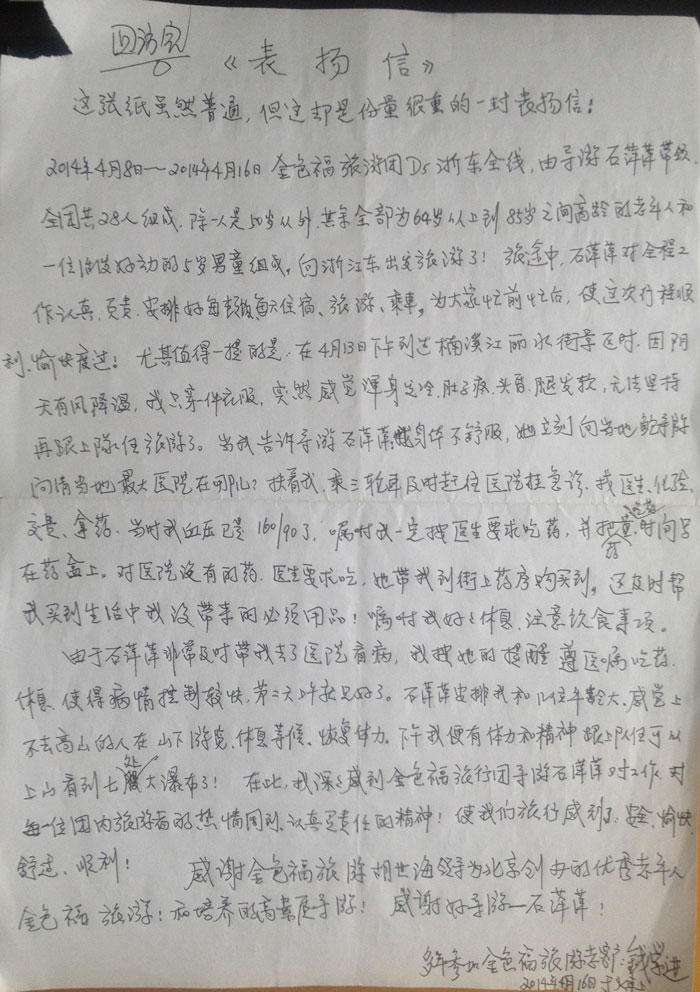 回访室
《表扬信》
这张纸虽然普通，但这却是份量很重的一封表扬信！
2014年4月8日～2014年4月16日 金色福旅游团D5浙东全线，由导游石萍萍带领
全团共28人组成，除一人是50岁以外，其余全部为64岁以上到85岁之间高龄的老年人和
一位活泼好动的5岁男童组成。向浙江东出发旅游了！旅途中，石萍萍对全程工
作认真、负责，安排好每天住宿、旅游、乘車。为大家忙前忙后，使这次行程顺
利、愉快度过！尤其值得一提的是，在4月13日下午到达楠溪江丽水街景区时，因阴
天有风降温，我只穿一件衣服，突然感觉浑身发冷、肚子疼、头晕、腿发软，无法坚持
再跟上队伍旅游了。当我告诉导游石萍萍，身体不舒服，她立刻向当地导游
问清当地最大医院在哪儿？扶着我，乘三轮車及时赶往医院挂急诊，找医生、化验、
交费、拿药。当时我血压已是160/90了，嘱咐我一定按医生要求吃药，并把吃药时间写
在药盒上。对医院没有的药，医生要求吃，她带我到街上药房购买到，还及时帮
我买到生活中我没带来的必须用品！嘱咐我好好休息，注意饮食事项。
由于石萍萍非常及时带我去了医院看病，我按她的提醒遵医嘱吃药、
休息，使得病情控制较快，第二天上午就见好了。石萍萍安排我和几位年龄大、感觉上
不去高山的人在山下游览、休息等候、恢复体力。下午我便有体力和精神跟上队伍可以
上山看到七处大瀑布了！在此，我深深感到金色福旅行团导游石萍萍对工作、对
每一位团内旅游者的热情周到、认真负责任的精神！使我们旅行感到了安全、愉快、
舒适、顺利！感谢金色福旅游胡世海领导为北京创办的优秀老年人
金色福旅游！而培养的高素质导游！感谢好导游—石萍萍！
多年参加金色福旅游老客户：钱学进
2014年4月16日